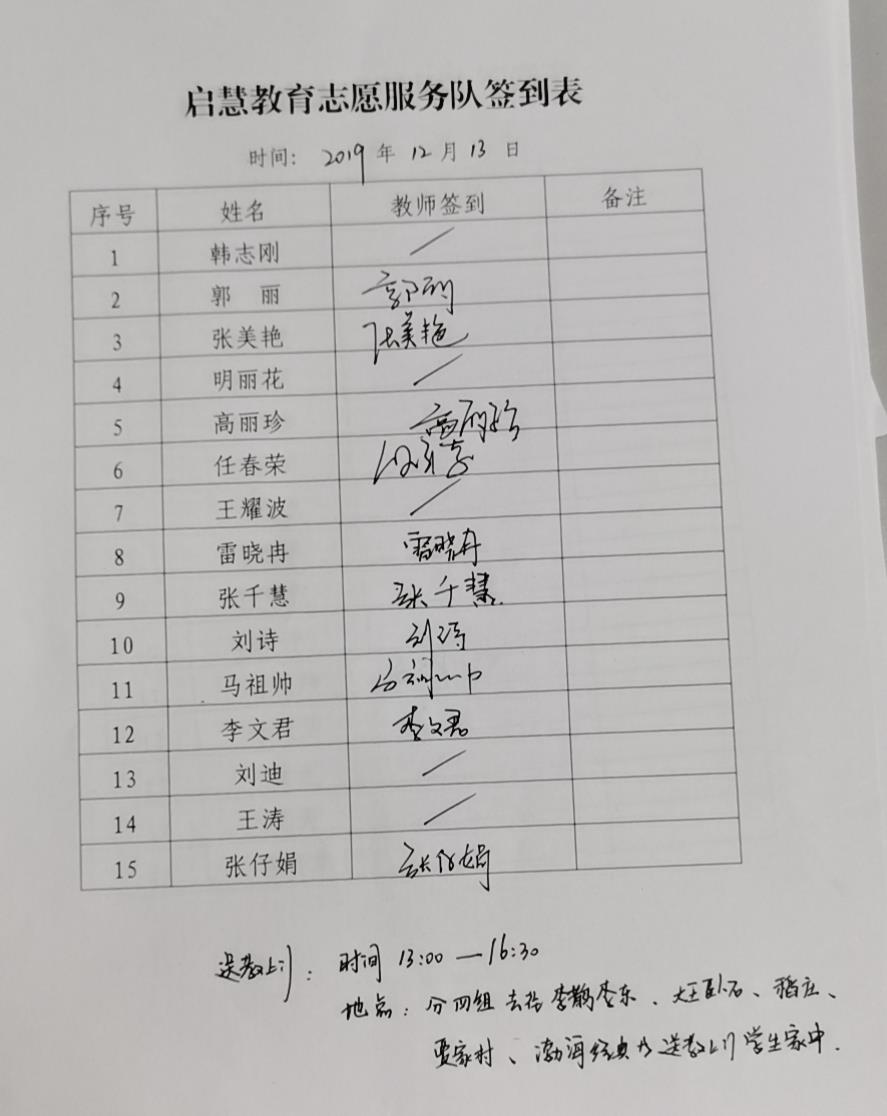 启慧教育志愿服务队签到表
时间: 2019 年 12 月 13 日
序号 姓名 教师签到 备注
1 韩志刚 /
2 郭 丽 郭丽
3 张美艳 张美艳
4 明丽花 /
5 高丽珍 高丽珍
6 任春荣
7 王耀波 /
8 雷晓冉 雷晓冉
9 张千慧 张千慧
10 刘诗 刘诗
11 马祖帅 马祖帅
12 李文君 李文君
13 刘迪 /
14 王涛 /
15 张仔娟 张仔娟
送教上门: 时间 13:00 — 16:30
地点: 分四组去李鹊李东、大王卧石、稻庄、
贾家村、渤海经典 送教上门学生家中.